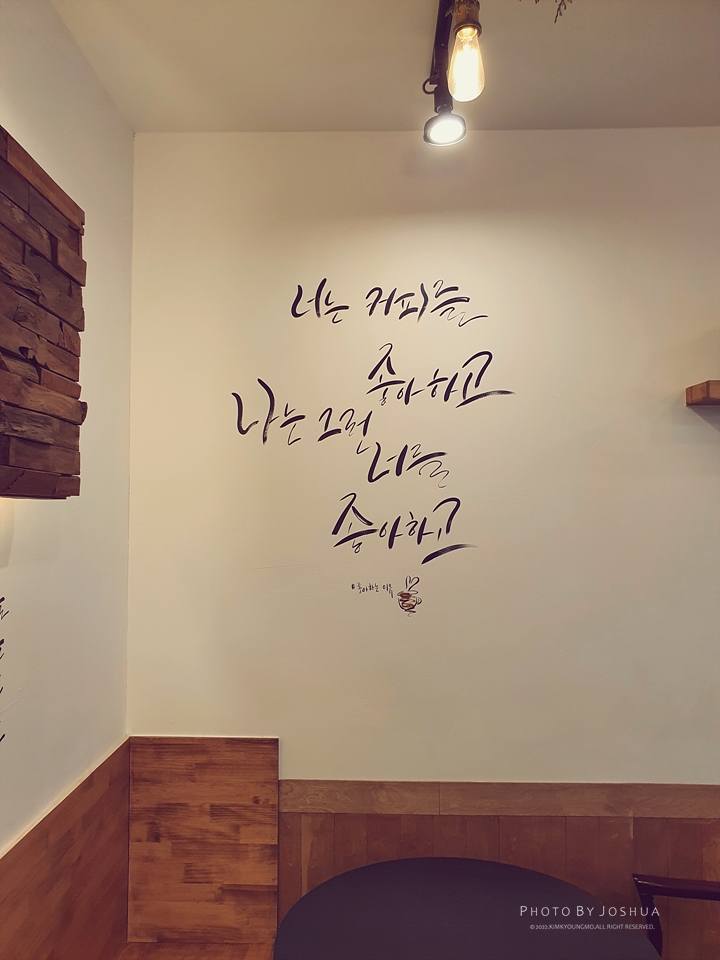 너는 커피를
좋아하고
나는 그런
너를
좋아하고
#좋아하는 이유
PHOTO BY JOSHUA
©2022.KIMKYOUNGMO.ALL RIGHT RESERVED.